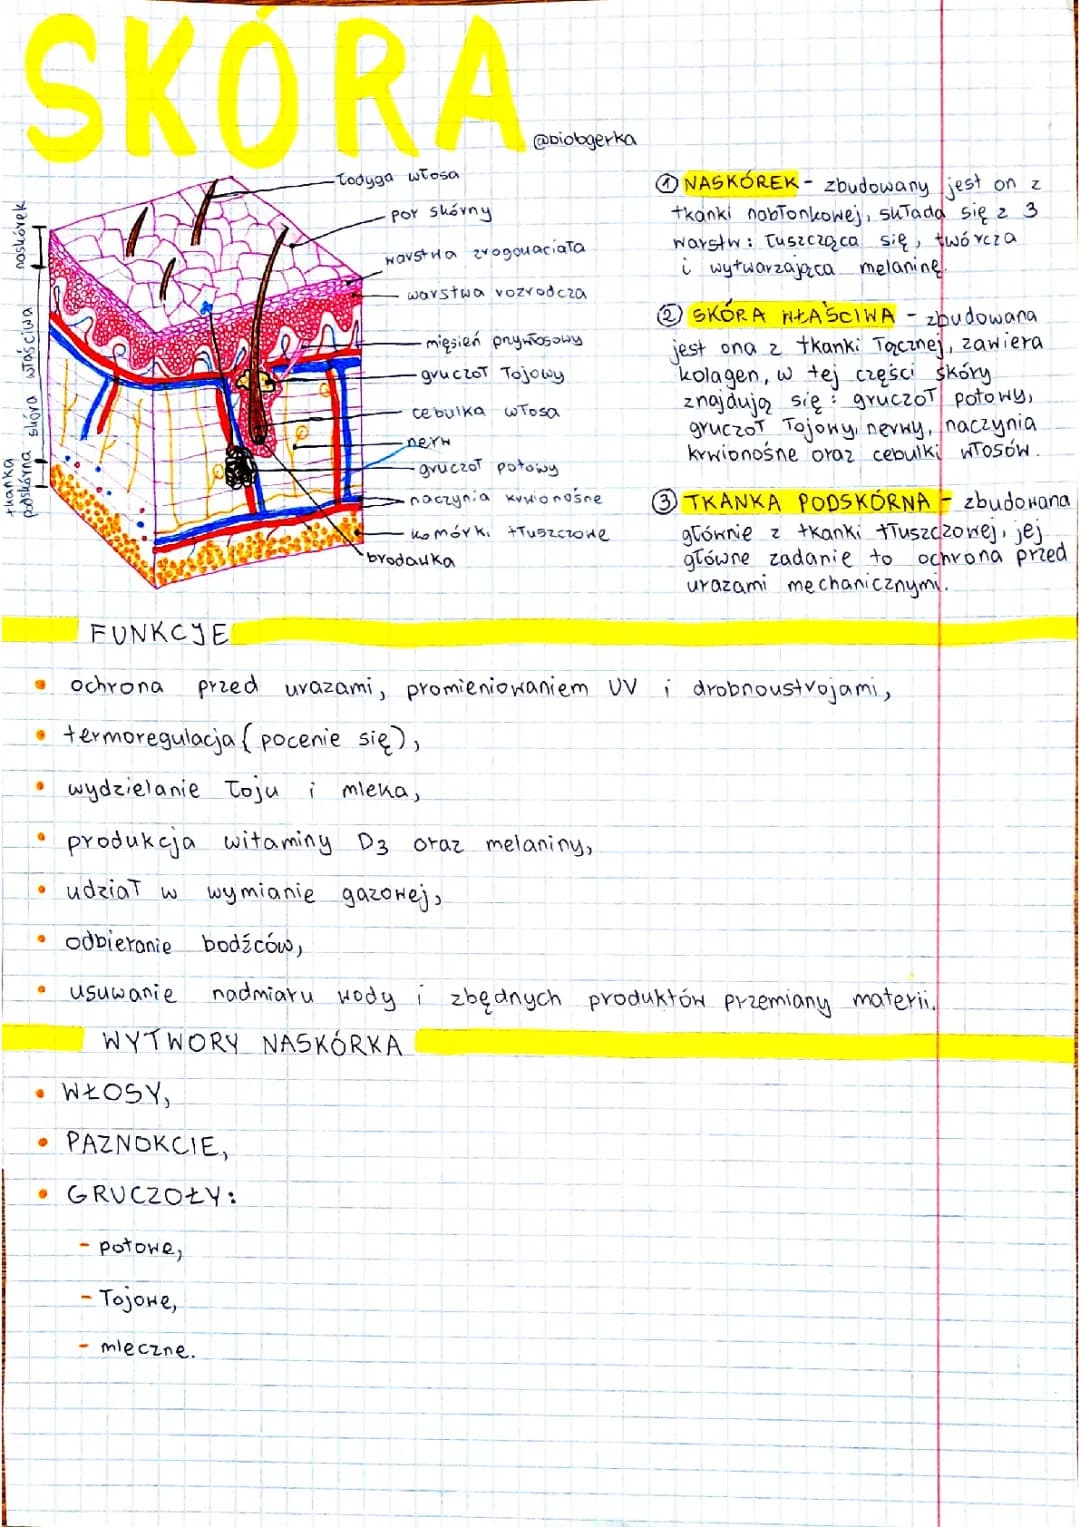 SKÓRA
@biobgerka
łodyga włosa
por skórny
warstwa zrogowaciała
warstwa rozrodcza
mięsień przywłosowy
gruczoł łojowy
cebulka włosa
nerw
gruczoł potowy
naczynia krwionośne
komórki tłuszczowe
brodawka
naskórek
skóra właściwa
tkanka
podskórna
① NASKÓREK - zbudowany jest on z
tkanki nabłonkowej, składa się z 3
warstw: łuszcząca się, twórcza
i wytwarzająca melaninę.
② SKÓRA WŁAŚCIWA - zbudowana
jest ona z tkanki łącznej, zawiera
kolagen, w tej części skóry
znajdują się: gruczoł potowy,
gruczoł łojowy, nerwy, naczynia
krwionośne oraz cebulki włosów.
③ TKANKA PODSKÓRNA - zbudowana
głównie z tkanki tłuszczowej, jej
główne zadanie to ochrona przed
urazami mechanicznymi.
FUNKCJE
• ochrona przed urazami, promieniowaniem UV i drobnoustrojami,
• termoregulacja (pocenie się),
• wydzielanie łoju i mleka,
• produkcja witaminy D3 oraz melaniny,
• udział w wymianie gazowej,
• odbieranie bodźców,
• usuwanie nadmiaru wody i zbędnych produktów przemiany materii.
WYTWORY NASKÓRKA
• WŁOSY,
• PAZNOKCIE,
• GRUCZOŁY:
- potowe,
- łojowe,
- mleczne.